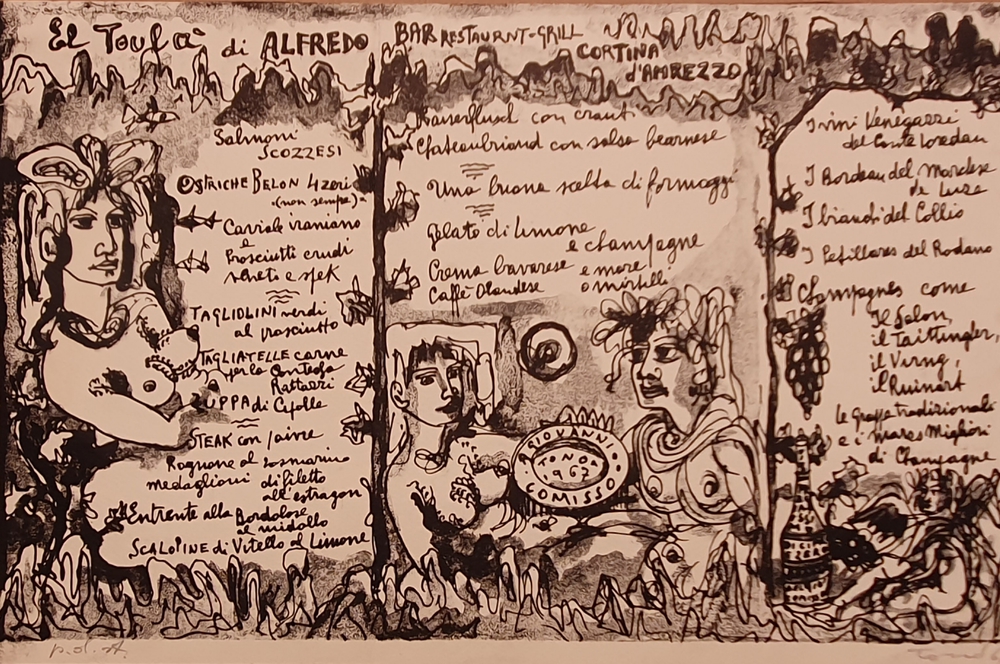 El Toulà di ALFREDO
BAR RESTAURNT-GRILL
CORTINA
d'AMPEZZO
Salmoni
SCOZZESI
OSTRICHE BELON 4 zeri
(non sempre)
Caviale iraniano
e
Prosciutti crudi
veneto e spek
TAGLIOLINI verdi
al prosciutto
TAGLIATELLE carne
per la Contessa
Rattazzi
ZUPPA di Cipolle
STEAK con poivre
Rognone al rosmarino
medaglioni di filetto
all'estragon
Entrecote alla Bordolose
al midollo
SCALOPINE di Vitello al Limone
Kaiserflusch con crauti
Chateaubriand con salsa bearnese
Una buona scelta di formaggi
Gelato di limone
e champagne
Crema bavarese e more
Caffè Olandese o mirtilli
GIOVANNI
COMISSO
TONO
1967
I vini Venegazzi
del Conte Loredan
I Bordeau del Marchese
de Luze
I bianchi del Collio
I Petillares del Rodano
Champagnes come
il Salon
il Taittinger,
il Verng,
il Ruinart
le Grappe tradizionali
e i mares Migliori
di Champagne
p.d.st.